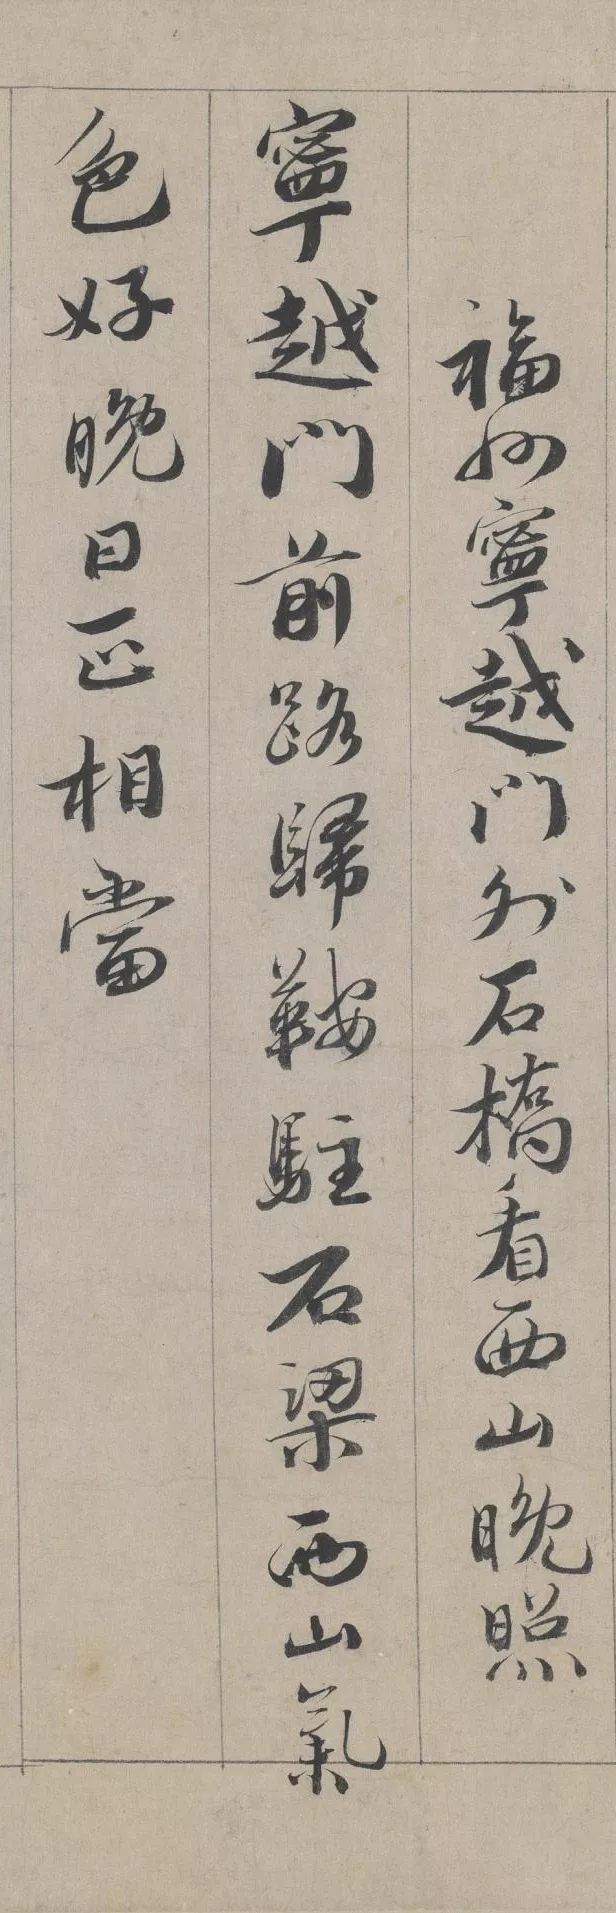 福州寧越門外石橋看西山晚照
寧越門前路歸鞍駐石梁西山氣
色好晚日正相當